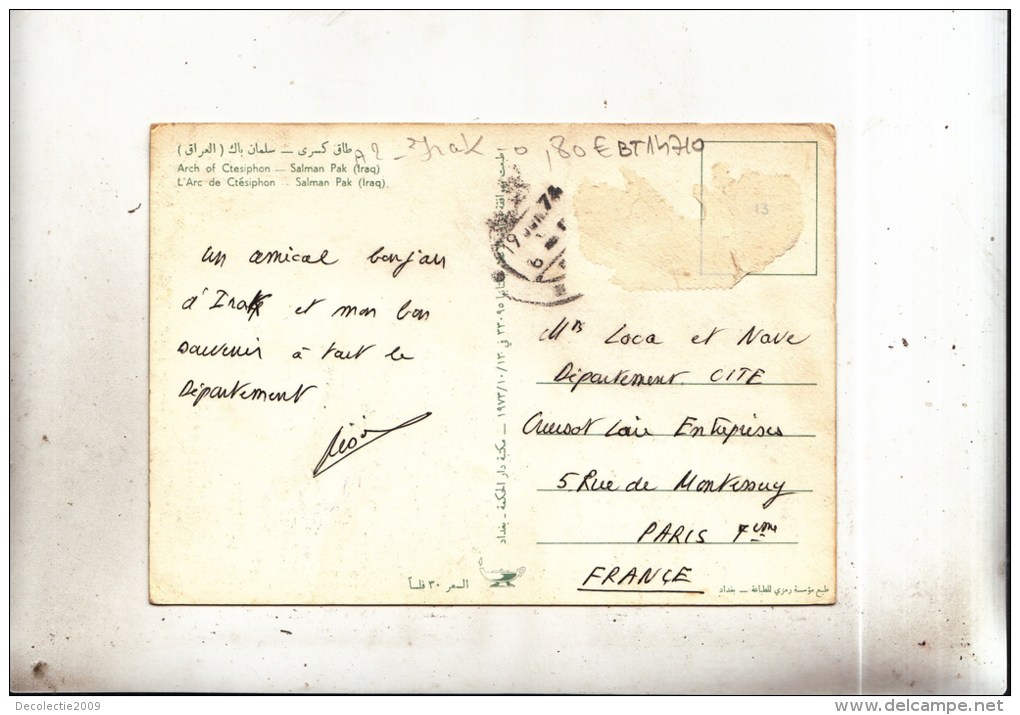 طاق كسرى — سلمان باك ( العراق )
Arch of Ctesiphon — Salman Pak (Iraq)
L'Arc de Ctésiphon — Salman Pak (Iraq).
Irak 0,80€ BT14710
19 JUN.74
13
un amical bonjour
d'Irak et mon bon
souvenir à tout le
Département
Mrs Loca et Nave
Département CITE
Creusot Loire Entreprises
5 Rue de Montessuy
PARIS 7eme
FRANCE
في ١٩٧٣/١٠/١٣ — مكتبة دار الحكمة - بغداد
السعر ٣٠ فلساً
طبع مؤسسة رمزي للطباعة — بغداد
Decolectie2009
www.delcampe.net